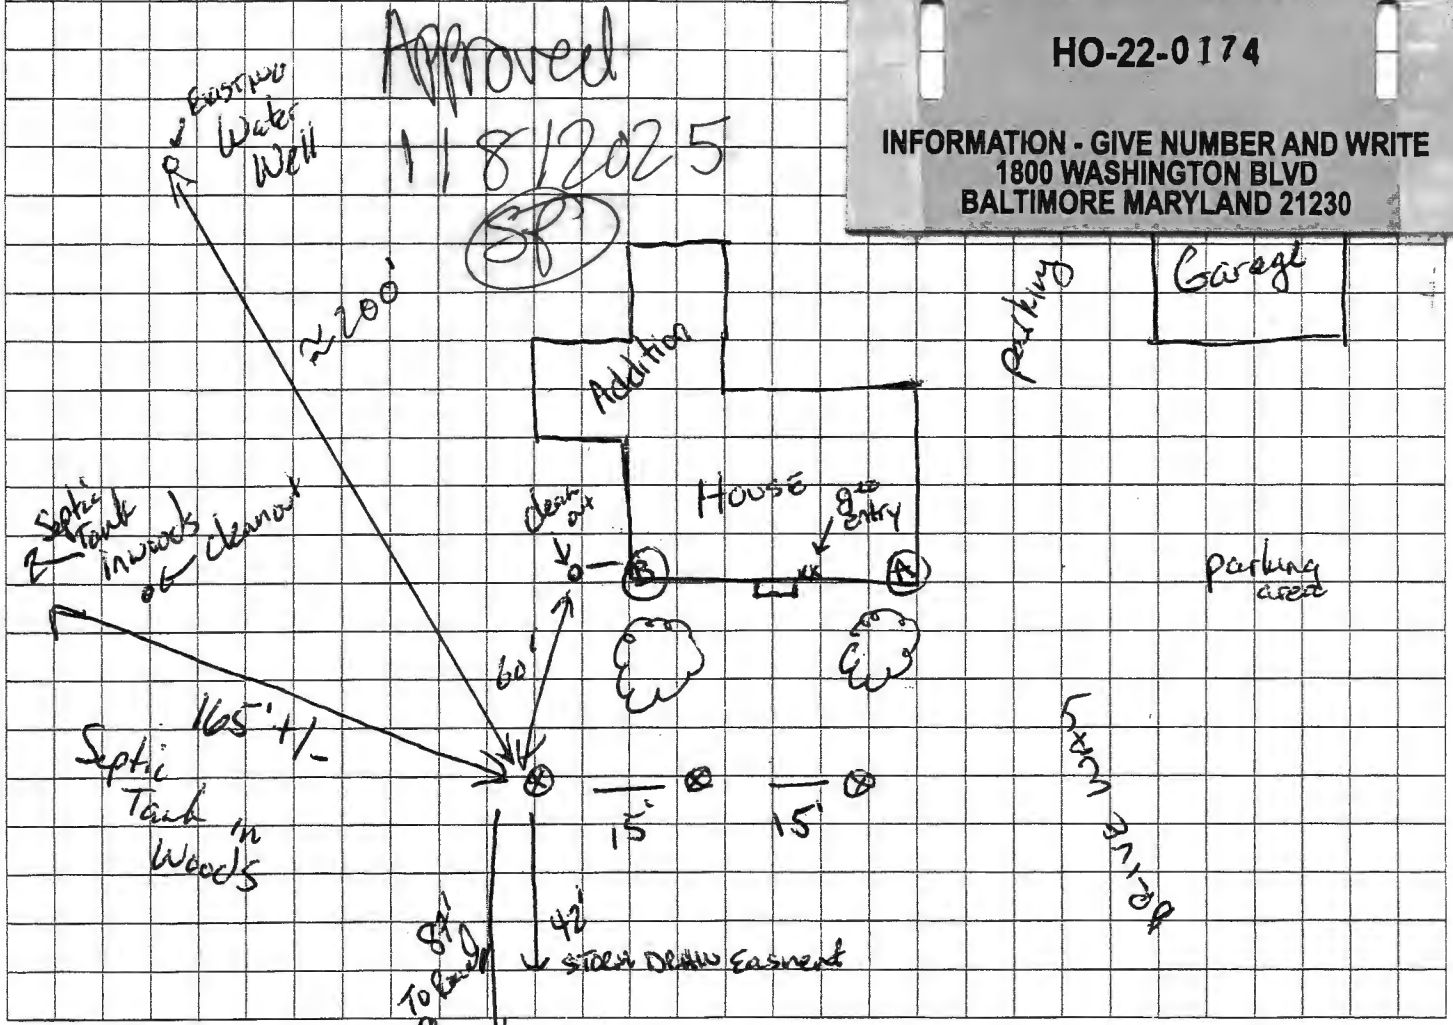 Approved
1/8/2025
SF
HO-22-0174
INFORMATION - GIVE NUMBER AND WRITE
1800 WASHINGTON BLVD
BALTIMORE MARYLAND 21230
Existing
Water
Well
≈200'
Addition
parking
Garage
HOUSE
geo
entry
clean
out
B
A
Septic
Tank
in woods
cleanout
parking
area
60'
165' +/-
Septic
Tank
in
Woods
15'
15'
DRIVE WAY
42'
STORM DRAIN Easment
To